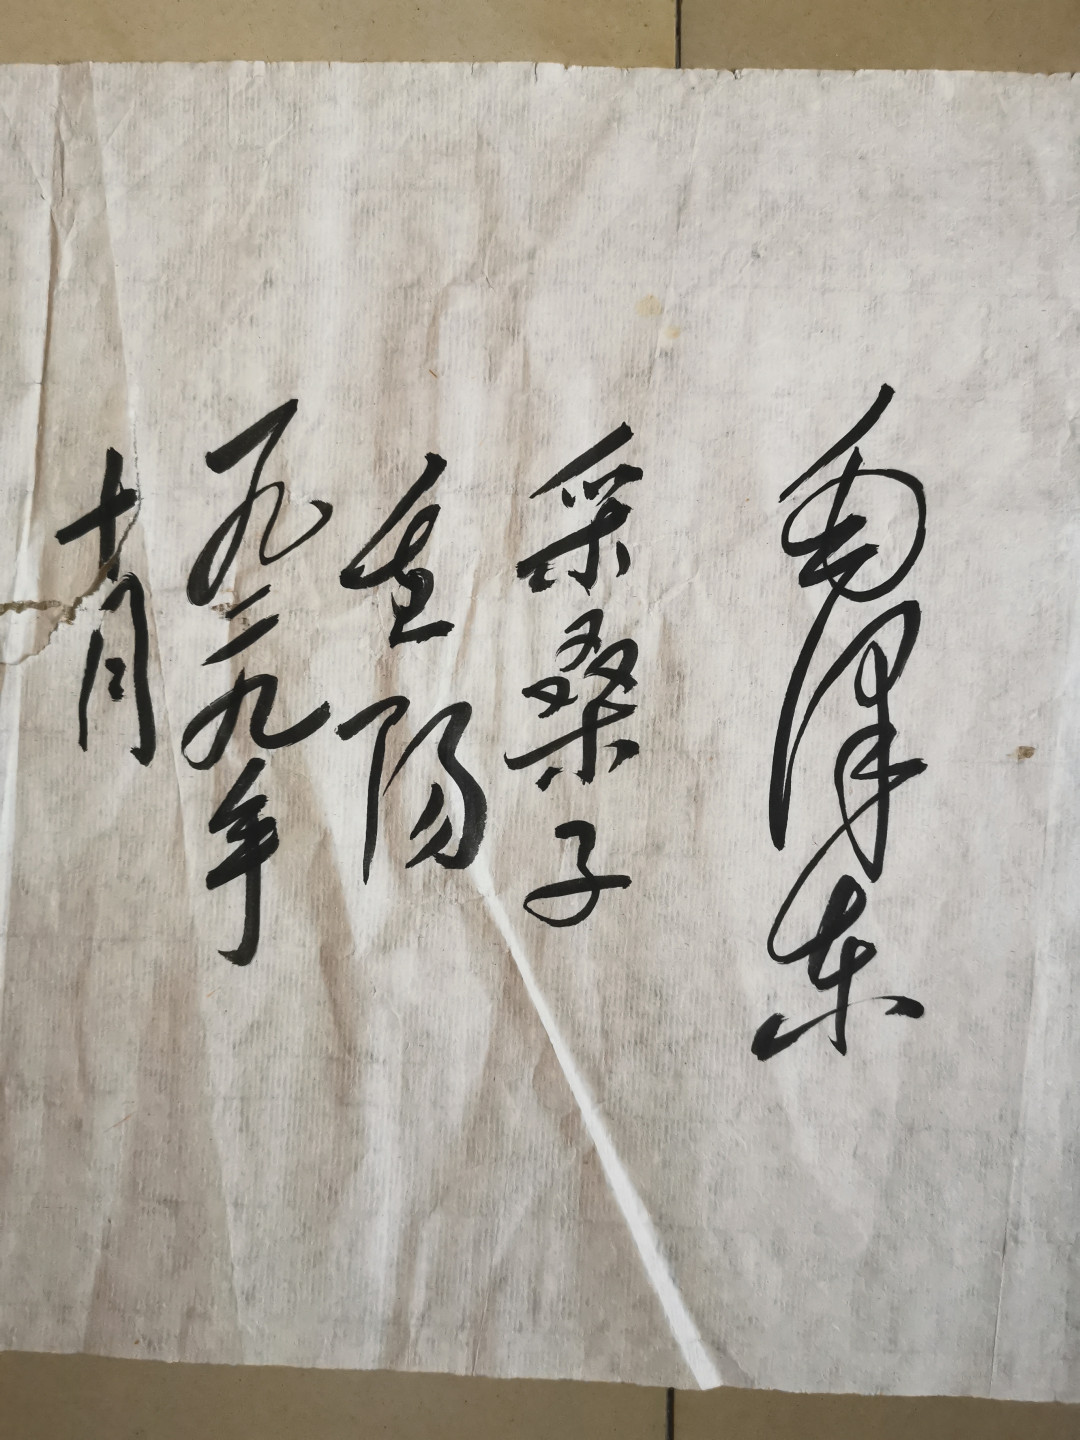 毛泽东
采桑子
重陽
一九二九年
十月